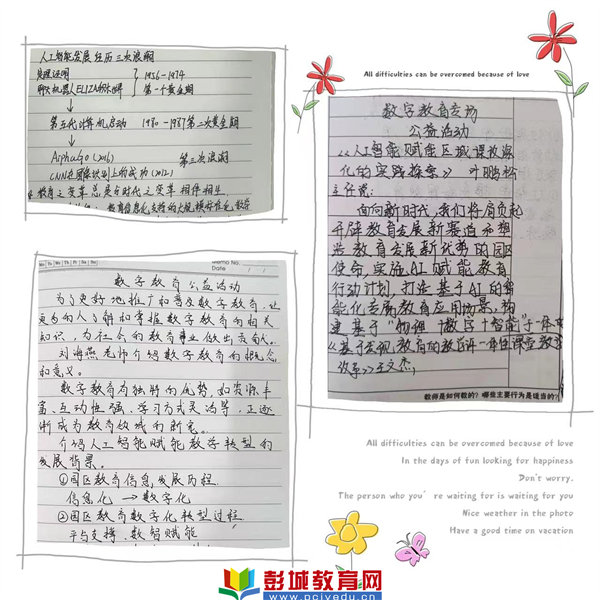 人工智能发展经历三次浪潮
定理证明
聊天机器人ELIZA的诞生
1956-1974
第一个黄金期
第五代计算机启动 1980-1987第二次黄金期
AlphaGo(2016)
第三次浪潮
CNN在图像识别上的成功(2012)
教育之变革总是与时代之变革相伴相生
All difficulties can be overcomed because of love
数字教育专场
公益活动
《人工智能赋能区域课改深
化的实践探索》 叶鹏松
主任说:
面向新时代,我们将肩负起
开辟教育发展新赛道和塑
造教育发展新优势的园区
使命,实施AI赋能教育
行动计划,打造基于AI的智
能化专属教育应用场景,构
建基于“物理+数字+智能”于一体
《基于
教育的教
评一体
课堂教学
改革》
教师是如何教的?哪些主要行为是适当的?
Mo Tu We Th Fr Sa Su
Memo No.
Date / /
数字教育公益活动
为了更好地推广和普及数字教育,让
更多的人了解和掌握数字教育的相关
知识,为社会的教育事业做出贡献。
刘海燕老师介绍数字教育的概念
和意义。
数字教育有独特的优势,如资源丰
富、互动性强、学习方式灵活等,正逐
渐成为教育领域的新宠。
介绍人工智能赋能教学转型的
发展背景。
①园区教育信息,发展历程
信息化 → 数字化
②园区教育数字化转型过程
平台支撑、数智赋能
All difficulties can be overcomed because of love
In the days of fun looking for happiness
Don't worry.
The person who you're waiting for is waiting for you
Nice weather in the photo
Have a good time on vacation
彭城教育网
www.pcjyedu.cn